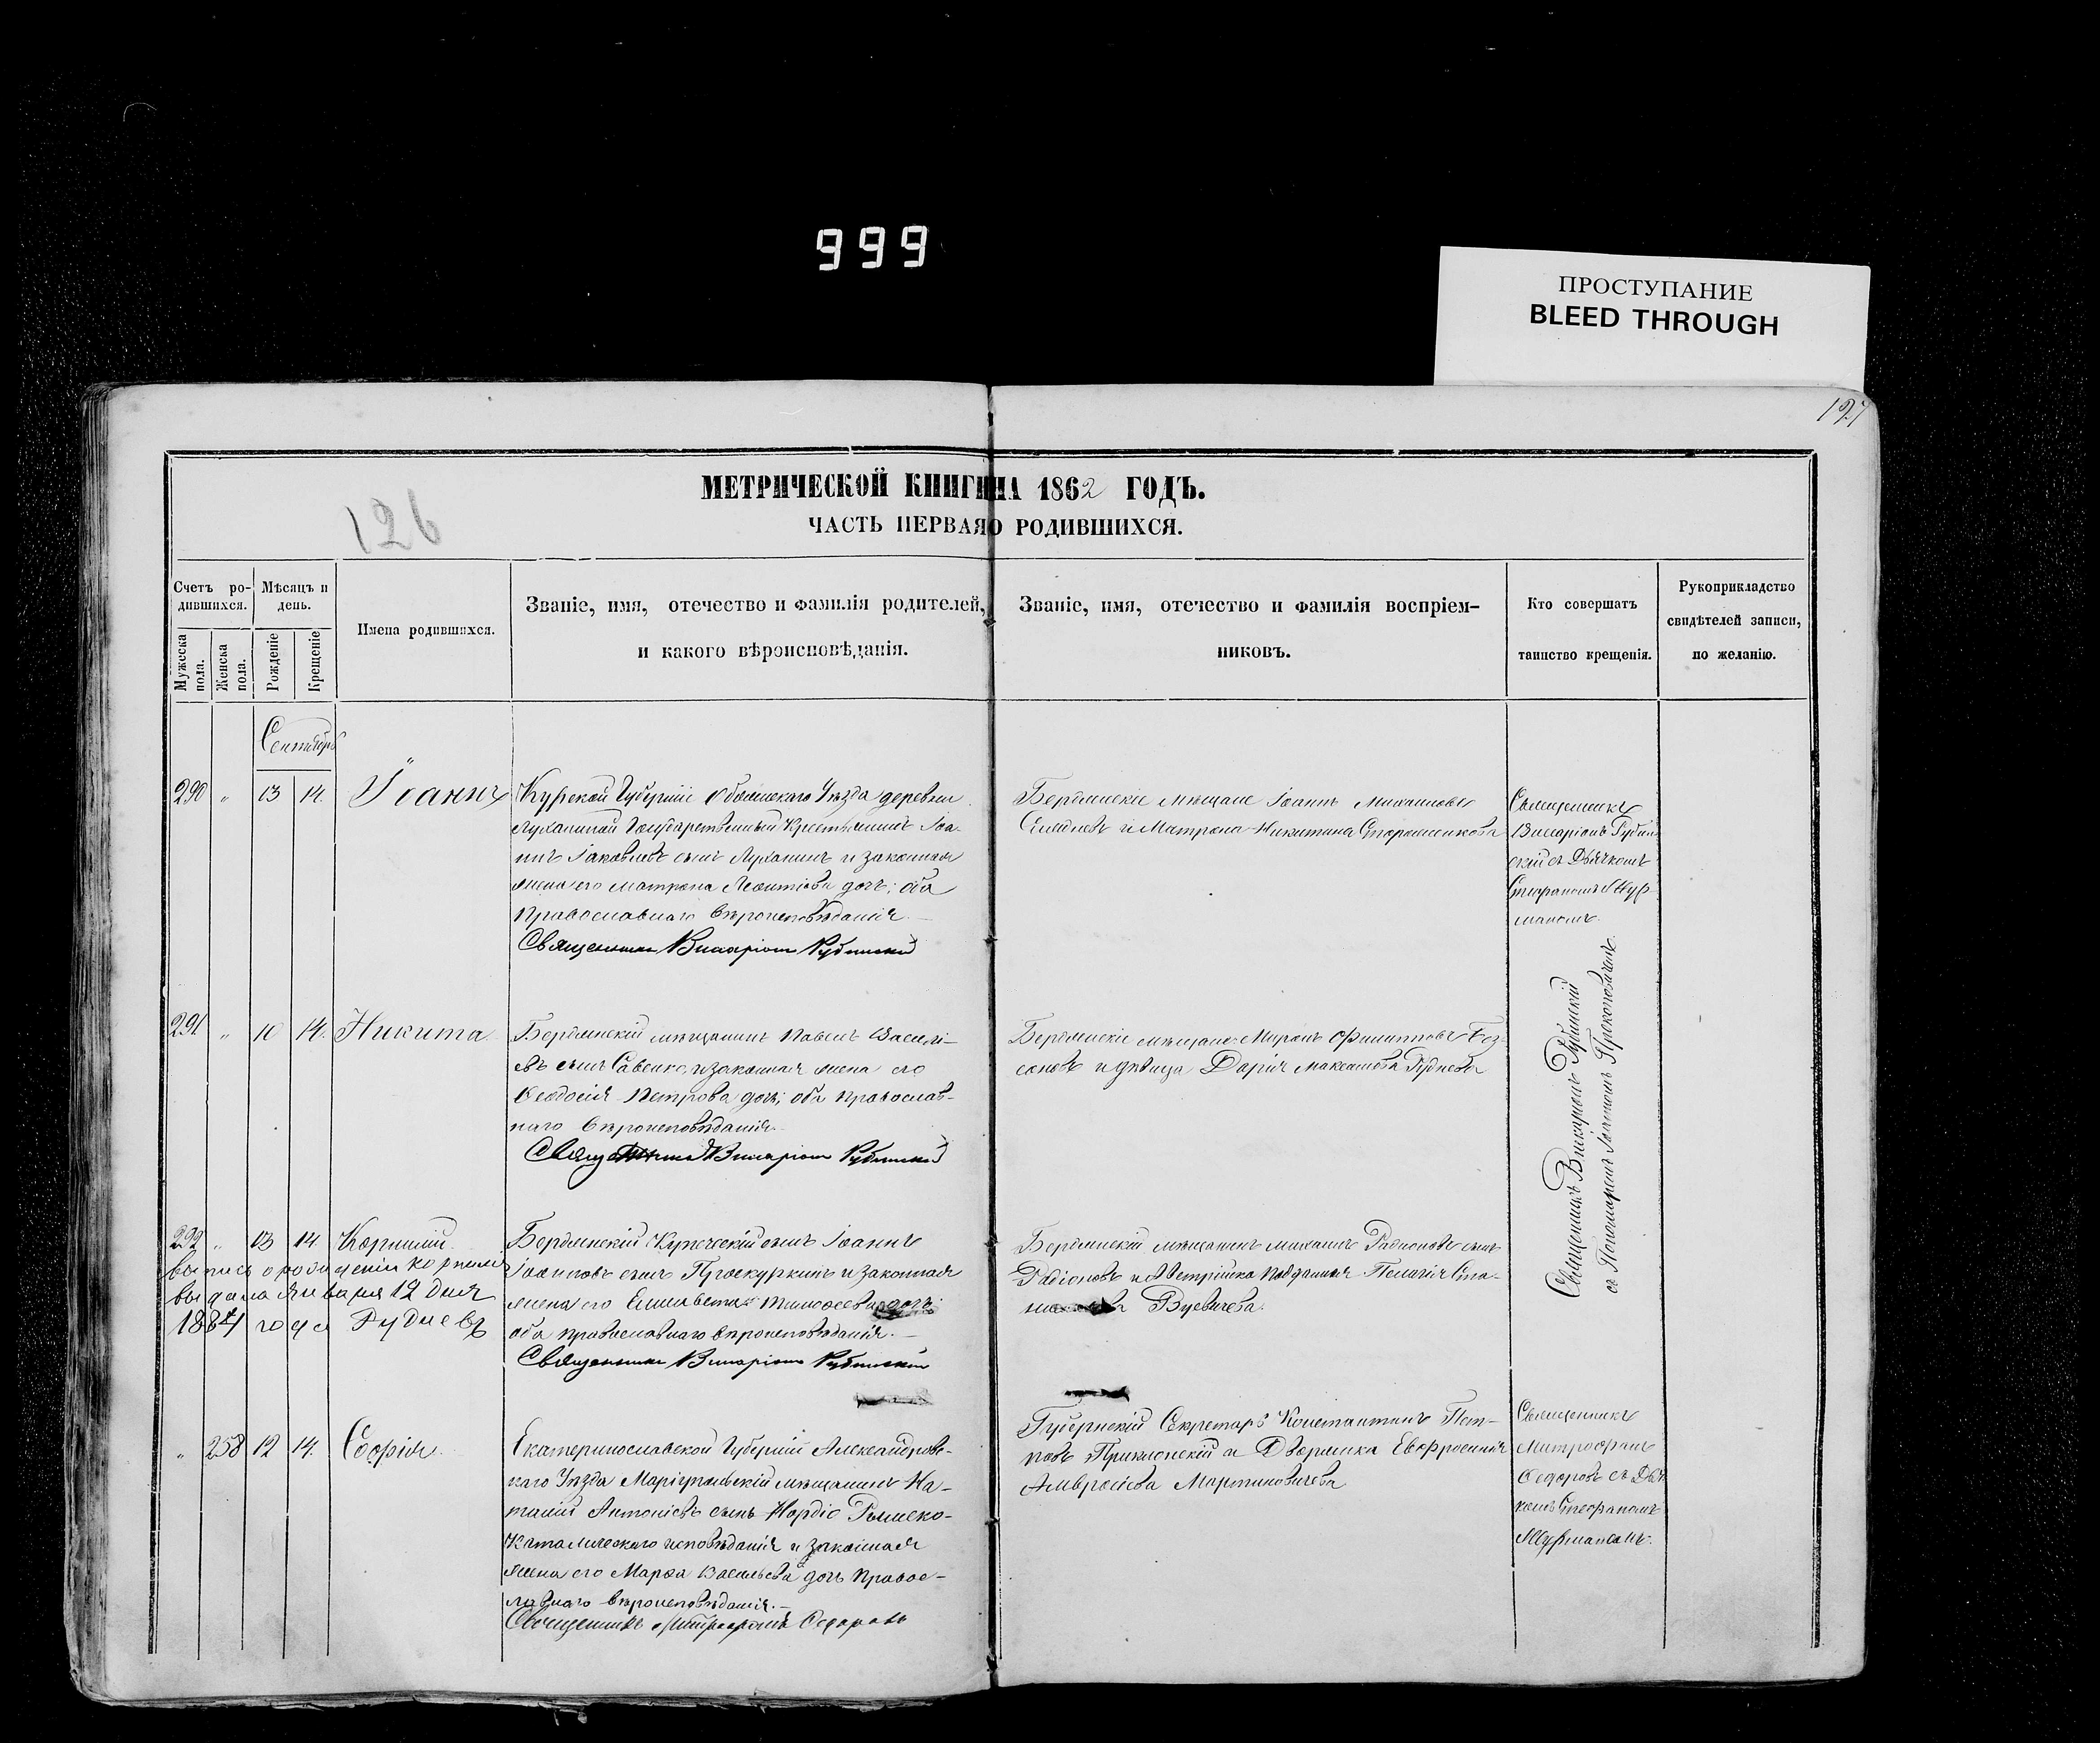 999
ПРОСТУПАНИЕ
BLEED THROUGH
127
126
МЕТРИЧЕСКОЙ КНИГИ НА 1862 ГОДЪ.
ЧАСТЬ ПЕРВАЯ О РОДИВШИХСЯ.
Счетъ ро-
дившихся.
Мужеска
пола.
Женска
пола.
Мѣсяцъ и
день.
Рожденіе
Крещеніе
Имена родившихся.
Званіе, имя, отечество и фамилія родителей,
и какого вѣроисповѣданія.
Званіе, имя, отечество и фамилія воспріем-
никовъ.
Кто совершатъ
таинство крещенія.
Рукоприкладство
свидѣтелей записи,
по желанію.
Сентябрь
290 „ 13 14. Іоаннъ
Курской Губерніи Обоянскаго Уѣзда деревни
Луханиной Государственный Крестьянинъ Іоа-
ннъ Іаковлевъ сынъ Луханинъ и законная
жена его Матрона Леонтіева дочь; оба
Православнаго вѣроисповѣданія.—
Священникъ Виссаріонъ Рубинскій
Бердянскіе мѣщане Іоаннъ Михаиловъ
и Матрона Никитина
Священникъ
Виссаріонъ Рубин-
скій съ Дьячкомъ
Стефаномъ Жур-
маномъ.
291 „ 10 14. Никита
Бердянскій мѣщанинъ Павелъ Василі-
евъ сынъ Савенко, и законная жена его
Ѳеодосія Петрова дочь; оба православ-
наго вѣроисповѣданія.
Священникъ Виссаріонъ Рубинскій
Бердянскіе мѣщане Миронъ Филипповъ Без-
соновъ и дѣвица Дарія Максимова Руднева
Священникъ Виссаріонъ Рубинскій
съ Пономаремъ Іоанномъ Прокоповичемъ.
292 „ 13 14. Корнилій
выпись о рожденіи Корнилія
выдана Января 12 дня
1884 года Рудневъ
Бердянскій Купеческій сынъ Іоаннъ
Іоанновъ сынъ Проскуркинъ и законная
жена его Елисавета Тимоѳеева дочь;
оба православнаго вѣроисповѣданія.—
Священникъ Виссаріонъ Рубинскій
Бердянскій мѣщанинъ Михаилъ Радіоновъ сынъ
Радіоновъ и Австрійска подданная Пелагія
„ 258 12 14. Софія.
Екатеринославской Губерніи Александров-
скаго Уѣзда Маріупольскій мѣщанинъ На-
талій Антоніевъ сынъ Нардіо Римско-
Католическаго исповѣданія и законная
жена его Марѳа Васильева дочь Правос-
лавнаго вѣроисповѣданія.—
Священникъ Митрофанъ Ѳедоровъ
Губернскій Секретарь Константинъ Пет-
ровъ и Дворянка Евфросинія
Амвросіева Мартиновичева
Священникъ
Митрофанъ
Ѳедоровъ съ Дьяч-
комъ Стефаномъ
Журманомъ.